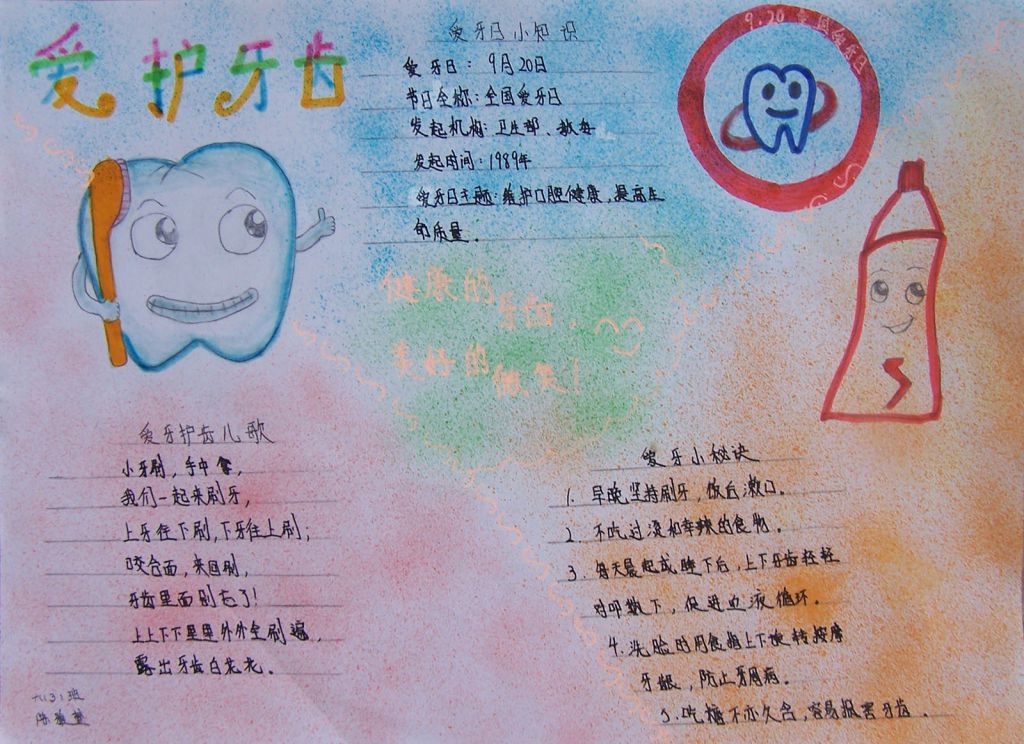 爱护牙齿
爱牙日小知识
爱牙日：9月20日
节日全称：全国爱牙日
发起机构：卫生部、教委
发起时间：1989年
爱牙日主题：维护口腔健康，提高生
命质量。
9.20全国爱牙日
健康的
牙齿，
美好的
微笑！
爱牙护齿儿歌
小牙刷，手中拿，
我们一起来刷牙，
上牙往下刷，下牙往上刷；
咬合面，来回刷，
牙齿里面别忘了！
上上下下里里外外全刷遍，
露出牙齿白光光。
爱牙小秘诀
1. 早晚坚持刷牙，饭后漱口。
2. 不吃过烫和辛辣的食物。
3. 每天晨起或睡下后，上下牙齿轻轻
对叩数下，促进血液循环。
4. 洗脸时用食指上下旋转按摩
牙龈，防止牙周病。
5. 吃糖不亦久含，容易报害牙齿。